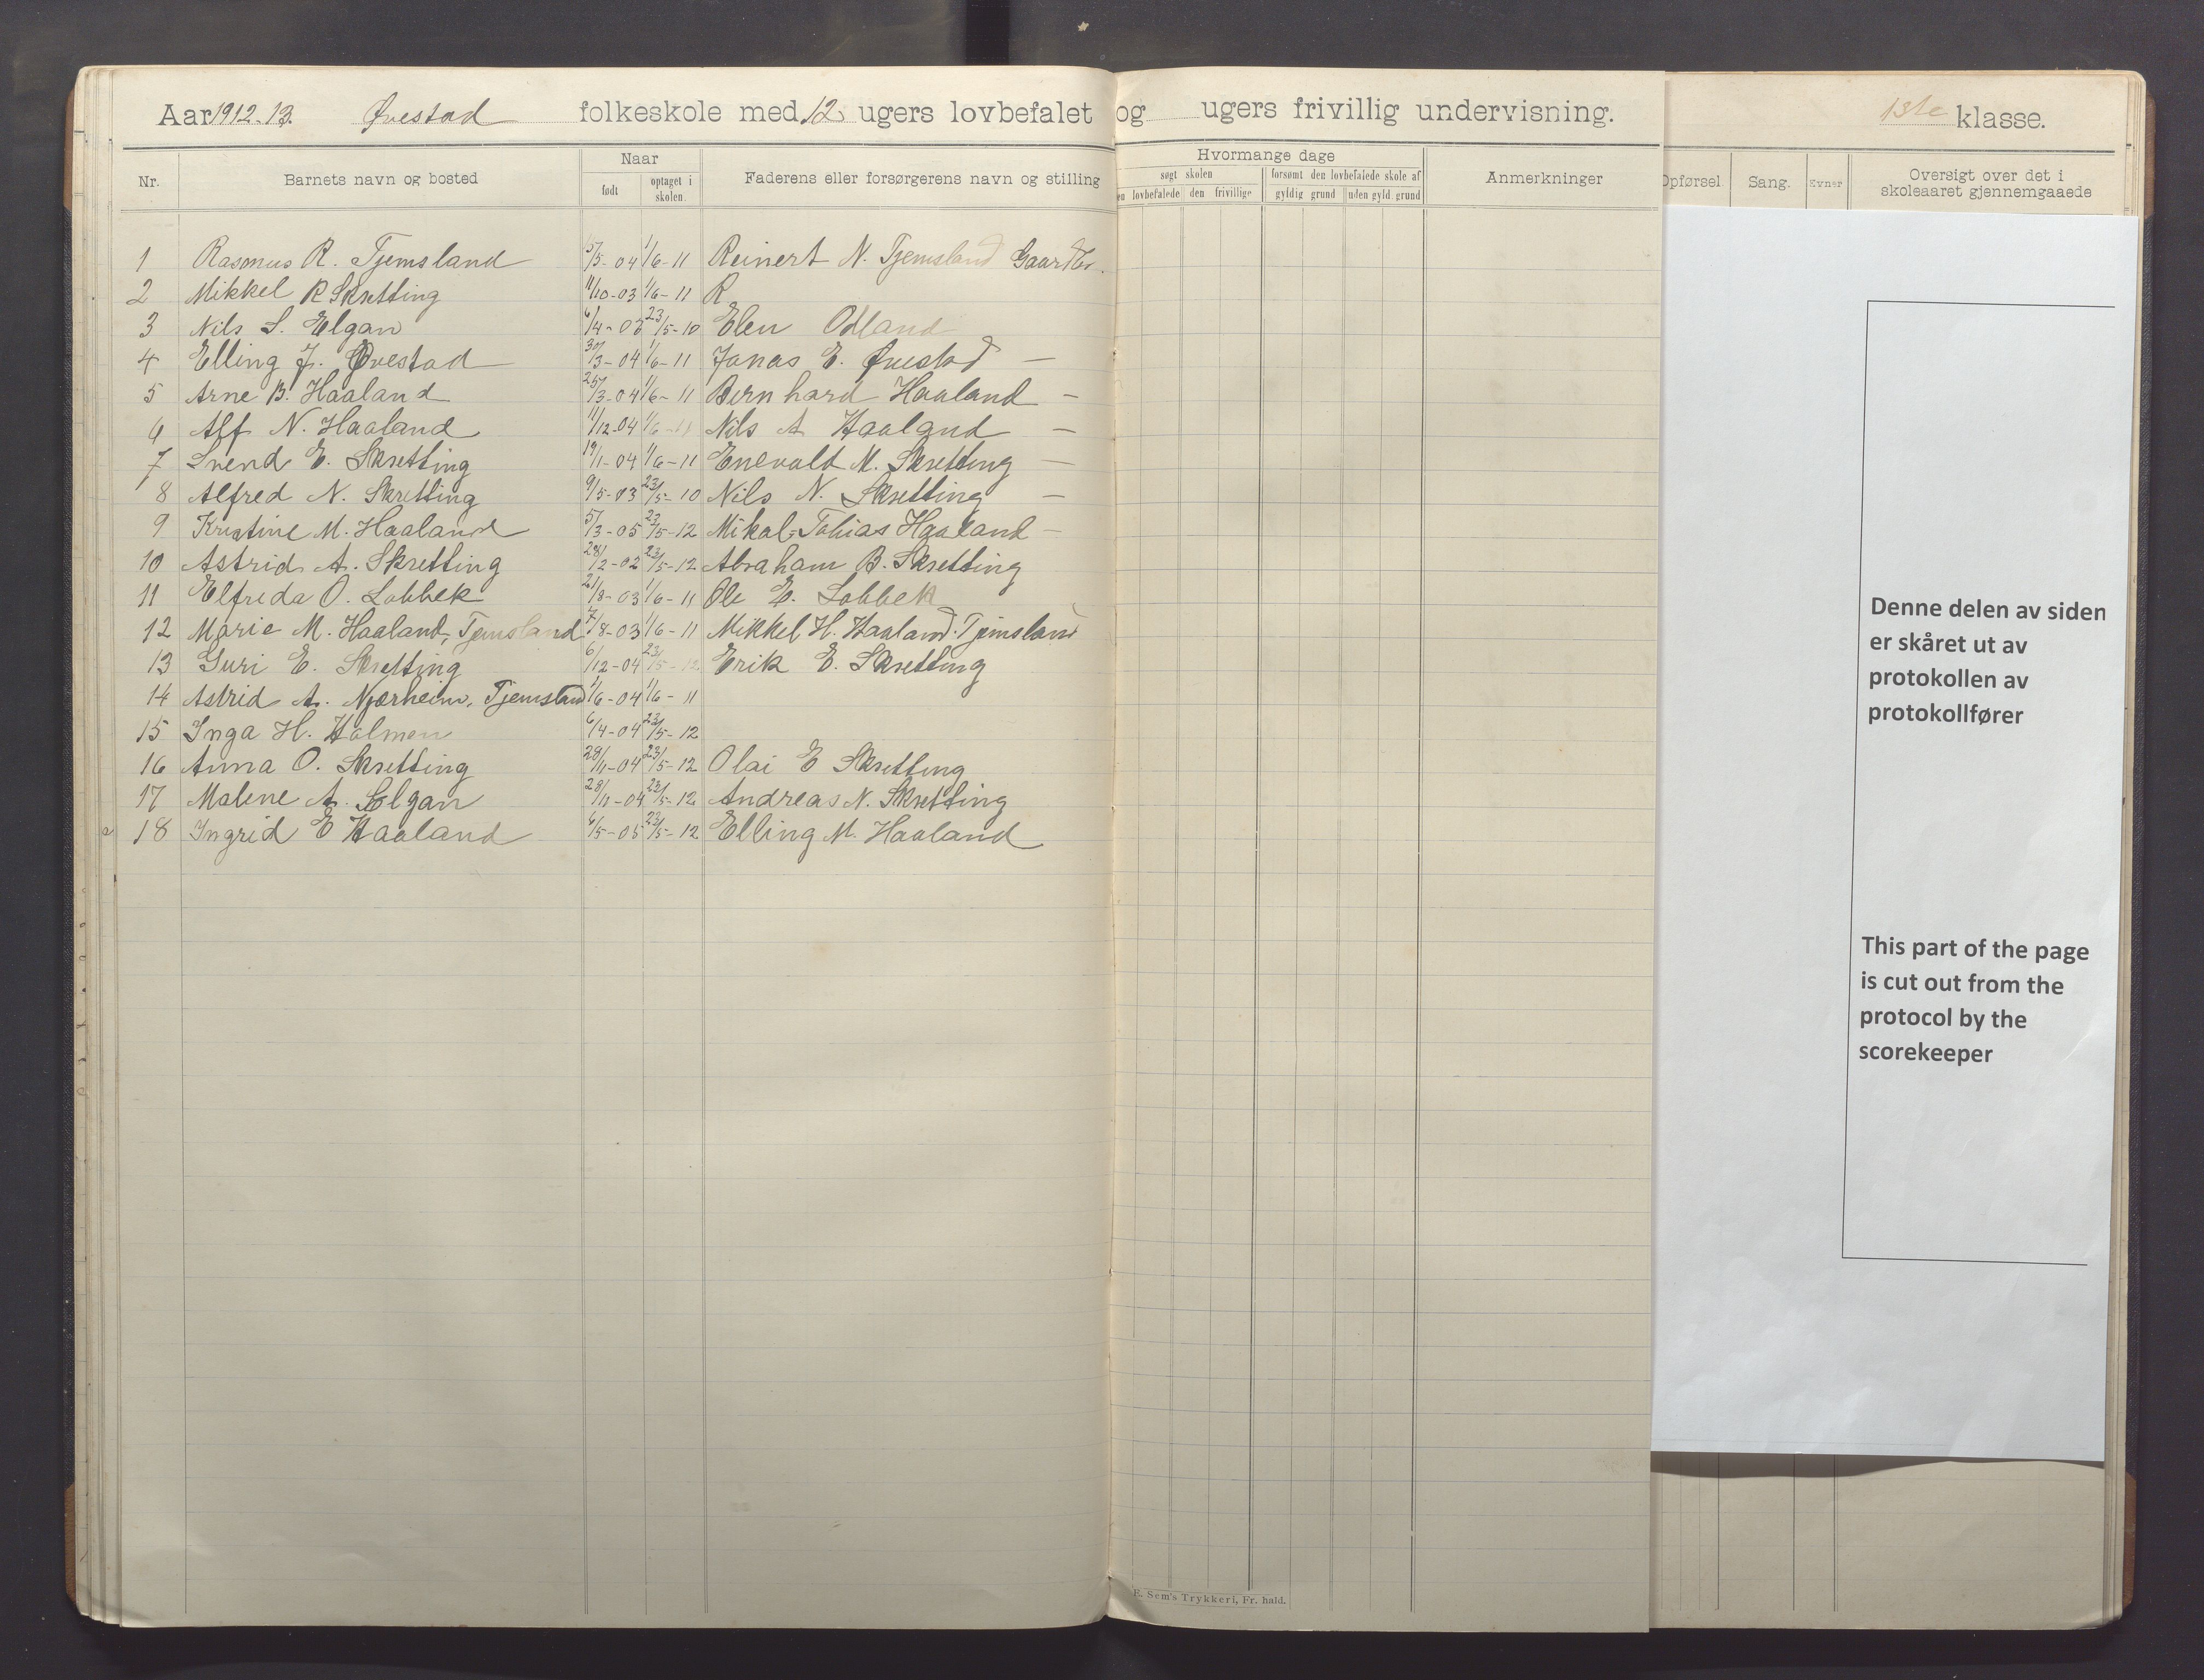 Aar 1912-13. Øvestad folkeskole med 12 ugers lovbefalet og ugers frivillig undervisning.
1ste klasse.
Nr. Barnets navn og bosted Naar født optaget i skolen. Faderens eller forsørgerens navn og stilling
Hvormange dage
søgt skolen forsømt den lovbefalede skole af
lovbefalede den frivillige gyldig grund uden gyld. grund
Anmerkninger
Opførsel. Sang. Evner Oversigt over det i skoleaaret gjennemgaaede
1 Rasmus R. Tjemsland 5/5-04 1/6-11 Reinert N. Tjemsland Gaardbr.
2 Mikkel R Skretting 11/10-03 1/6-11 R
3 Nils S. Elgan 6/4-03 23/5-10 Elen Odland
4 Elling J. Øvestad 30/3-04 1/6-11 Jonas E. Øvestad —
5 Arne B. Haaland 25/3-04 1/6-11 Bernhard Haaland —
6 Alf N. Haaland 11/12-04 1/6-11 Nils A Haaland —
7 Svend E. Skretting 19/1-04 1/6-11 Enevald M. Skretting —
8 Alfred N. Skretting 9/5-03 23/5-10 Nils N. Skretting —
9 Kristine M. Haaland 5/3-05 23/5-12 Mikal Tobias Haaland —
10 Astrid A. Skretting 28/2-02 23/5-12 Abraham B. Skretting
11 Elfreda O. Lobbek 21/8-03 1/6-11 Ole E. Lobbek
12 Marie M. Haaland, Tjemsland 7/8-03 1/6-11 Mikkel H. Haaland. Tjemsland
13 Guri E. Skretting 6/12-04 23/5-12 Erik E. Skretting
14 Astrid A. Njærheim, Tjemsland 1/6-04 1/6-11
15 Inga H. Holmen 6/4-04 23/5-12
16 Anna O. Skretting 28/11-04 23/5-12 Olai E Skretting
17 Malene A. Elgan 28/11-04 23/5-12 Andreas N. Skretting
18 Ingrid E Haaland 6/5-05 23/5-12 Elling M. Haaland
Denne delen av siden
er skåret ut av
protokollen av
protokollfører
This part of the page
is cut out from the
protocol by the
scorekeeper
E. Sem's Trykkeri, Fr. hald.